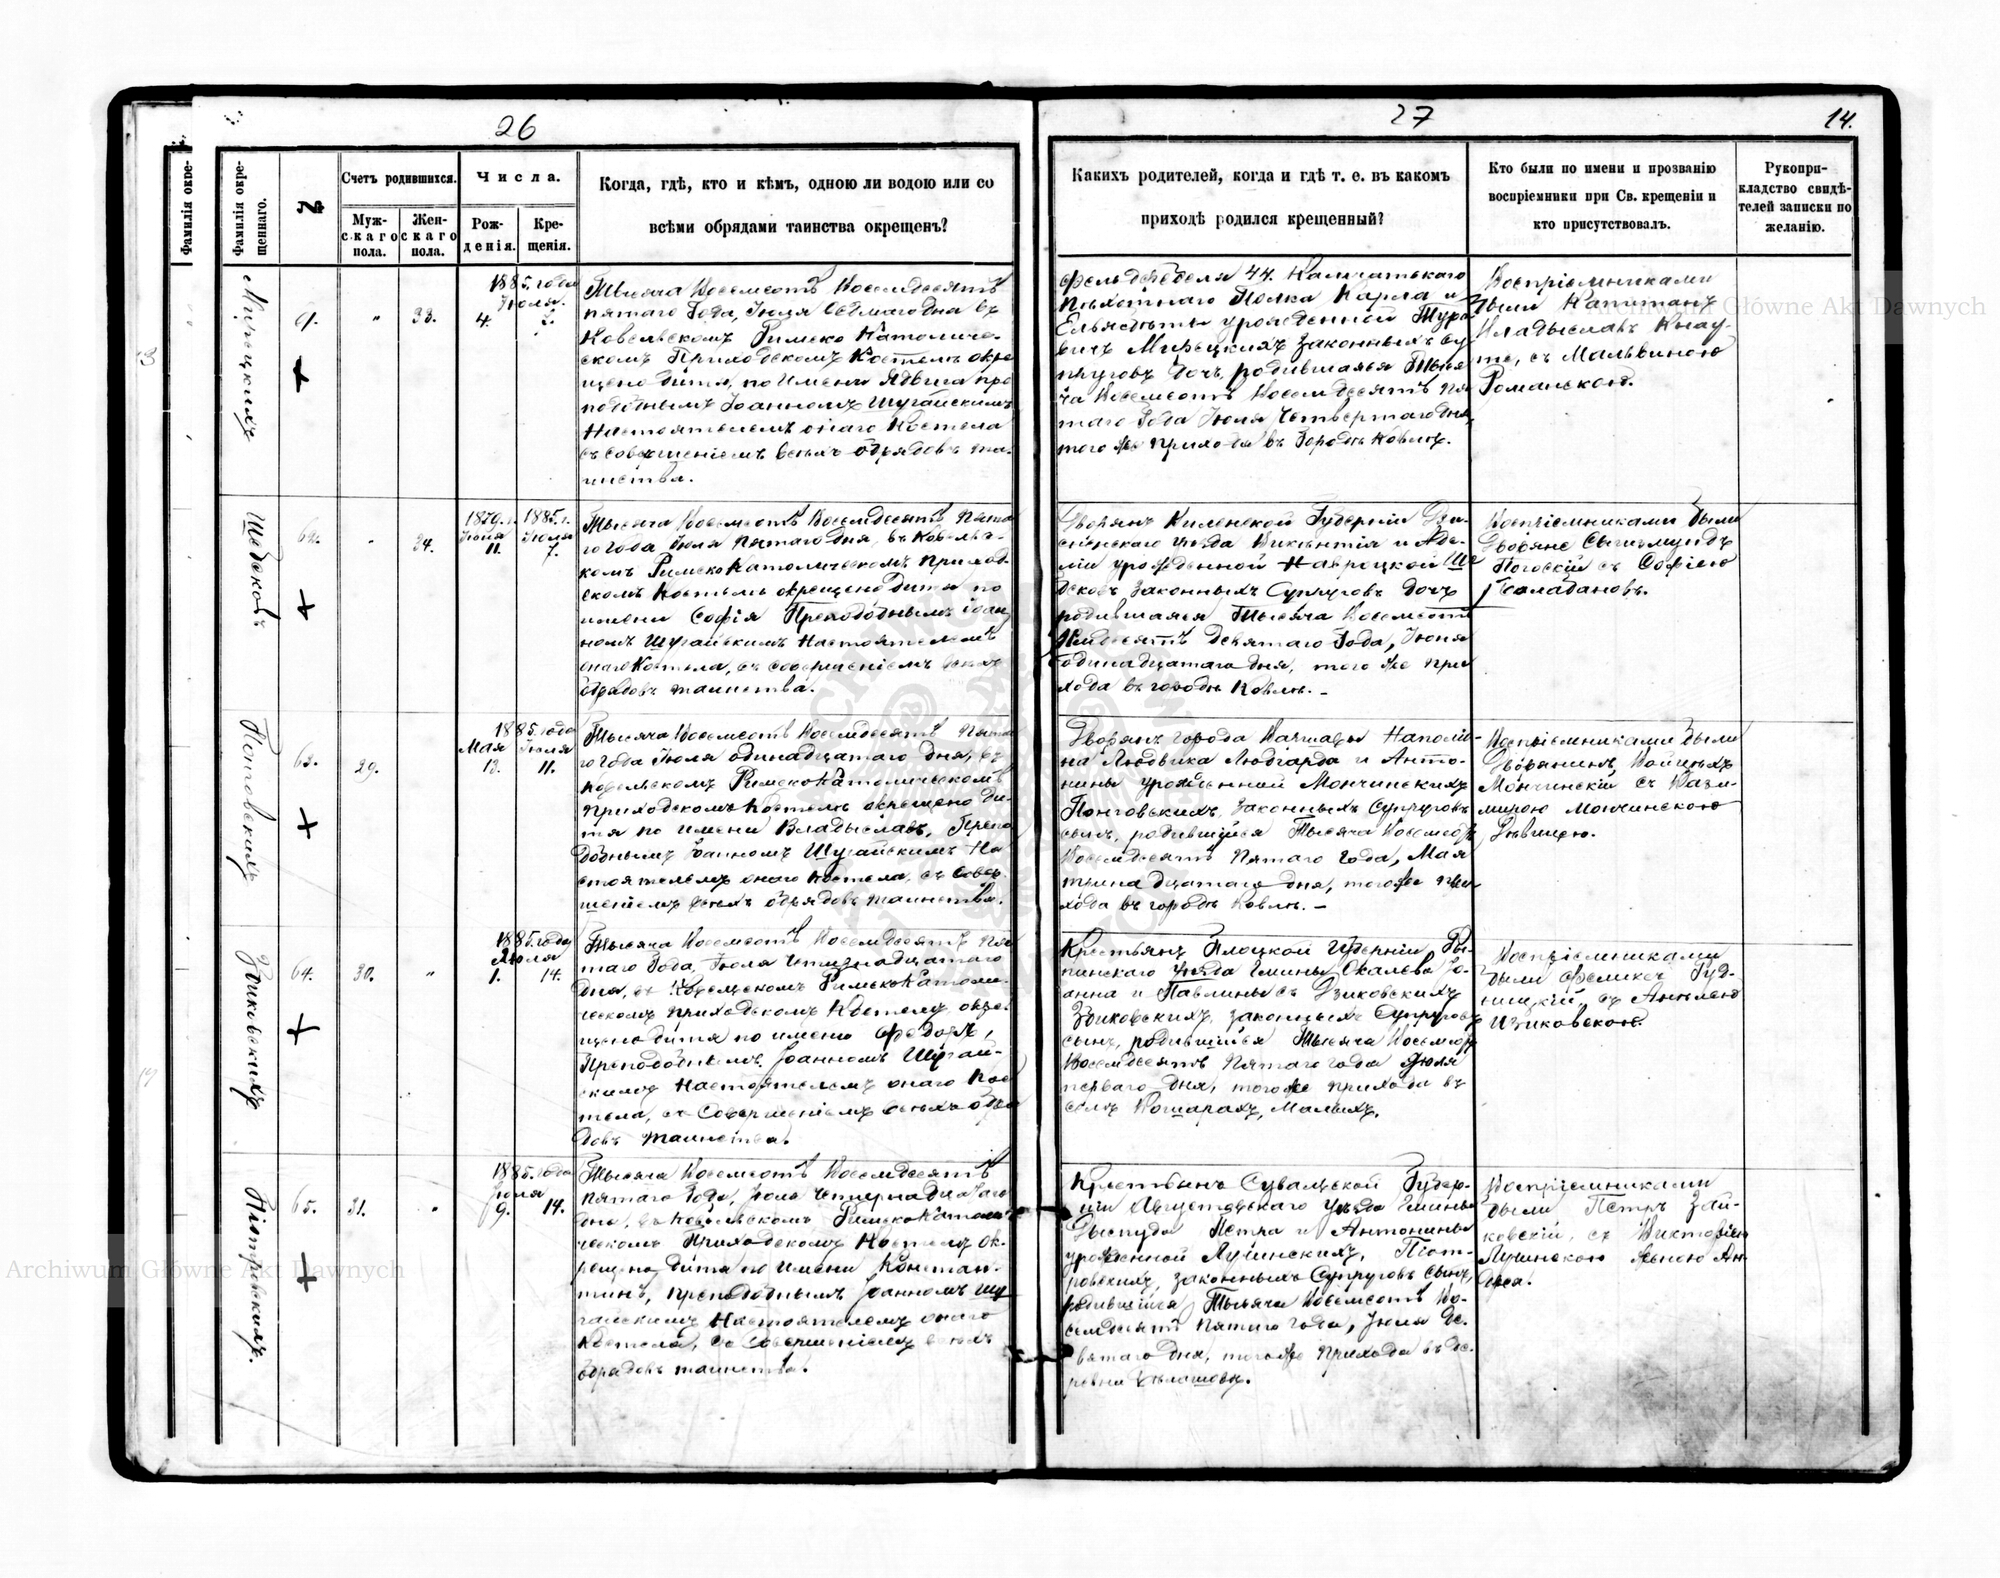 26
27
14.
Фамилія окре-
Фамилія окре-
щеннаго.
№
Счетъ родившихся.
Муж-
скаго
пола.
Жен-
скаго
пола.
Числа.
Рож-
денія.
Кре-
щенія.
Когда, гдѣ, кто и кѣмъ, одною ли водою или со
всѣми обрядами таинства окрещенъ?
Каких родителей, когда и гдѣ т. е. въ какомъ
приходѣ родился крещенный?
Кто были по имени и прозванію
воспріемники при Св. крещеніи и
кто присутствовалъ.
Рукопри-
кладство свидѣ-
телей записки по
желанію.
33.
1885. года
Іюля.
4.
7.
Тысяча Восемсотъ Восемдесятъ
пятаго Года, Іюля Седмаго дня въ
Ковельскомъ Римско Католиче-
скомъ Приходскомъ Костелѣ окре
щено дитя, по имени Ядвига пре
подобнымъ Іоанномъ Шугайскимъ
Настоятелемъ онаго Костела
съ совершеніемъ всѣхъ обрядовъ та-
инства.
Фельдфебеля 44. Камчатскаго
Пѣхотнаго Полка Карла и
Ельжбеты урожденной Тура
вичъ Мирецкихъ законныхъ су
пруговъ дочь, родившаяся Тыся
ча Восемсотъ Восемдесятъ пя
таго Года Іюля Четвертаго дня,
того же прихода въ Городѣ Ковлѣ.
Воспріемниками
были Капитанъ
Владыславъ Кнау-
те, съ Мальвиною
Романскою.
34.
1879. г.
Іюня
11.
1885. г.
Іюля
7.
Тысяча Восемсотъ Восемдесятъ Пята
го Года Іюля Пятаго дня, въ Ковель-
комъ Римско Католическомъ приход-
скомъ Костелѣ окрещено дитя по
имени Софія Преподобнымъ Іоан
номъ Шугайскимъ Настоятелемъ
онаго Костела, съ совершеніемъ всѣхъ
обрядовъ таинства.
Дворянъ Виленской Губерніи Ди-
сненскаго уѣзда Викентія и Аде-
ліи урожденной Навроцкой Ще
дсковъ Законныхъ Супруговъ дочь
родившаяся Тысяча Восемсотъ
Семдесятъ Девятаго Года, Іюня
Одинадцатаго дня, того же при
хода въ городѣ Ковлѣ.
Воспріемниками были
Дворяне Сыгизмундъ
Погоскій съ Софіею
Балабановъ.
63.
29.
1885. года
Мая
13.
Іюля
11.
Тысяча Восемсотъ Восемдесятъ Пята
го Года Іюля одинадцатаго дня, въ
Ковельскомъ Римско Католическомъ
Приходскомъ Костелѣ окрещено ди-
тя по имени Владыславъ, Препо
добнымъ Іоанномъ Шугайскимъ На
стоятелемъ онаго Костела, съ Совер
шеніемъ всѣхъ обрядовъ таинства.
Дворянъ города Варшавы Наполіо-
на Людвика Людгарда и Анто-
нины урожденной Мончинскихъ
Понговскихъ, Законныхъ Супруговъ
сынъ, родившійся Тысяча Восемсотъ
Восемдесятъ Пятаго Года, Мая
тринадцатаго дня, того же при
хода въ городѣ Ковлѣ.
Воспріемниками были
Дворянинъ Войцехъ
Мончинскій съ Кази-
мирою Мончинскою
Дѣвицею.
Зриковскихъ
64.
30.
1885. года
Іюля
1.
14.
Тысяча Восемсотъ Восемдесятъ Пя
таго Года, Іюля четырнадцатаго
дня, въ Ковельскомъ Римско Католи
ческомъ приходскомъ Костелѣ окре-
щено дитя по имени Федоръ,
Преподобнымъ Іоанномъ Шугай-
скимъ Настоятелемъ онаго Кос
тела, съ Совершеніемъ всѣхъ обря
довъ таинства.
Крестьянъ Плоцкой Губерніи Ры-
пинскаго уѣзда Гмины Скалево Іо-
анна и Павлины съ Дзиковскихъ
законныхъ Супруговъ
сынъ, родившійся Тысяча Восемсотъ
Восемдесятъ Пятаго года Іюля
перваго дня, того же прихода въ
селѣ Кошарахъ, Малыхъ.
Воспріемниками
были Феликсъ Руд-
ницкій, съ Анелею
65.
31.
1885. года
Іюля
9.
14.
Тысяча Восемсотъ Восемдесятъ
пятаго Года, Іюля четырнадцатаго
дня, въ Ковельскомъ Римско Католи
ческомъ Приходскомъ Костелѣ ок-
рещено дитя по имени Констан-
тинъ, преподобнымъ Іоанномъ Шу
гайскимъ Настоятелемъ онаго
Костела, съ Совершеніемъ всѣхъ
обрядовъ таинства.
Піотровскихъ.
Крестьянъ Сувалкской Губер-
ніи Августовскаго Уѣзда Гмины
Петра и Антонины
урожденной Лучинскихъ, Піот-
ровскихъ, законныхъ Супруговъ сынъ,
родившійся Тысяча Восемсотъ Во-
семдесятъ пятаго года, Іюля Де-
вятаго дня, того же прихода въ де-
ревни
Воспріемниками
были Петръ Зай-
ковскій, съ Викторіею
Лучинскою
Archiwum Główne Akt Dawnych
Archiwum Główne Akt Dawnych